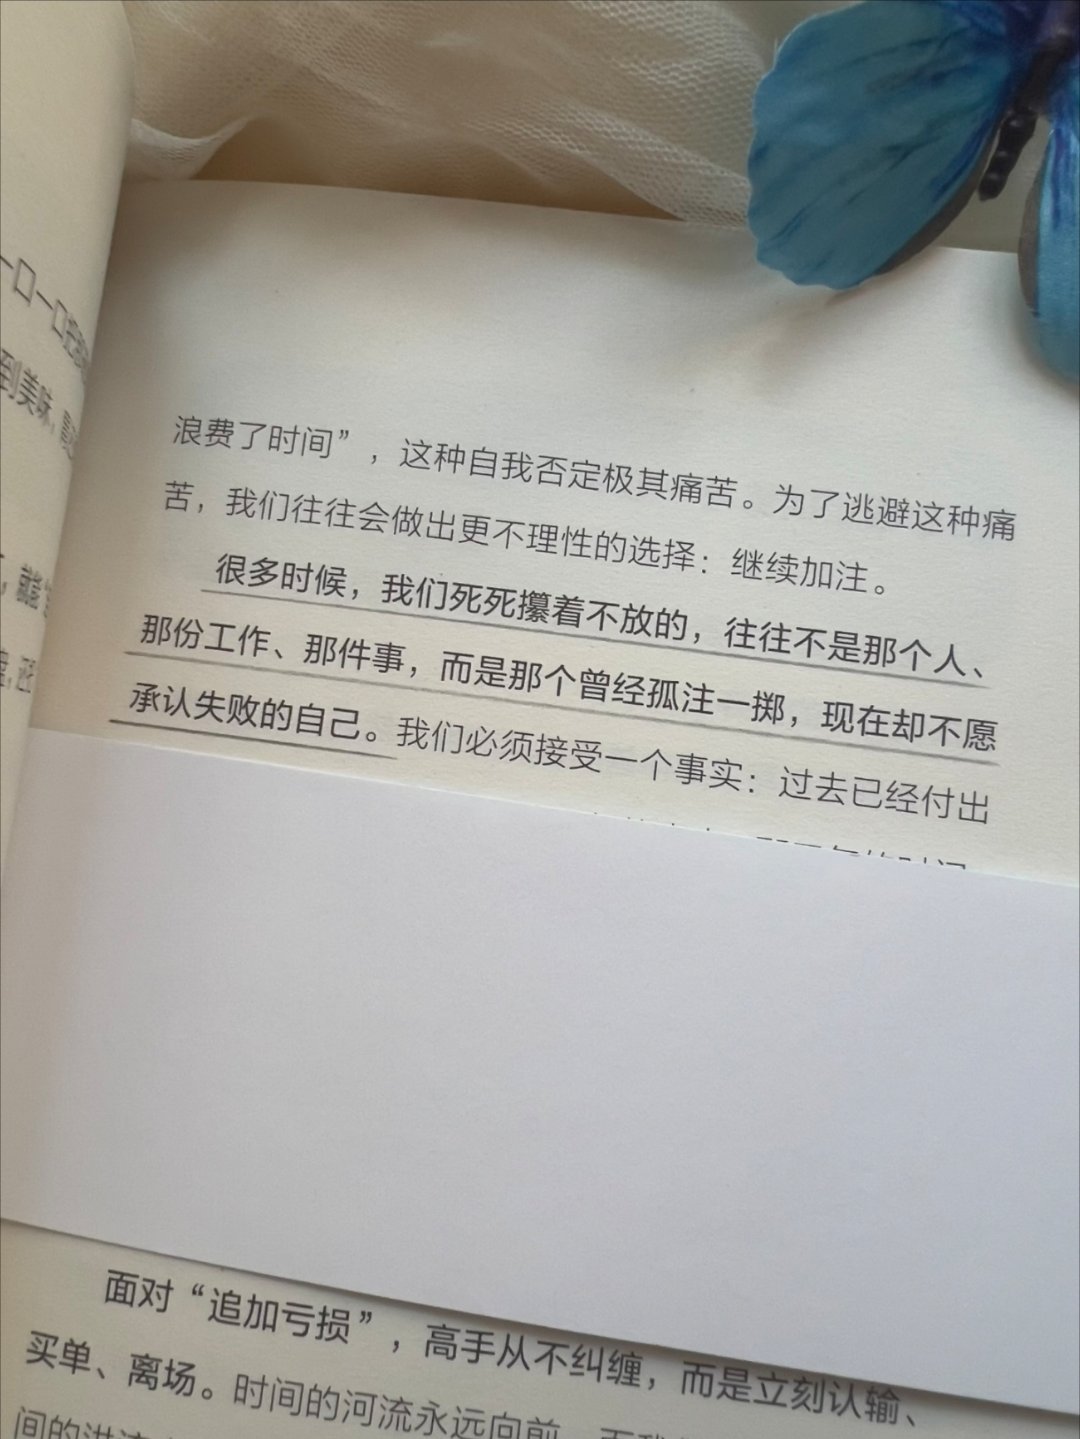 一口一口把
到美味，
，就能
，还
浪费了时间”，这种自我否定极其痛苦。为了逃避这种痛
苦，我们往往会做出更不理性的选择：继续加注。
很多时候，我们死死攥着不放的，往往不是那个人、
那份工作、那件事，而是那个曾经孤注一掷，现在却不愿
承认失败的自己。我们必须接受一个事实：过去已经付出
面对“追加亏损”，高手从不纠缠，而是立刻认输、
买单、离场。时间的河流永远向前，而我
间的洪流